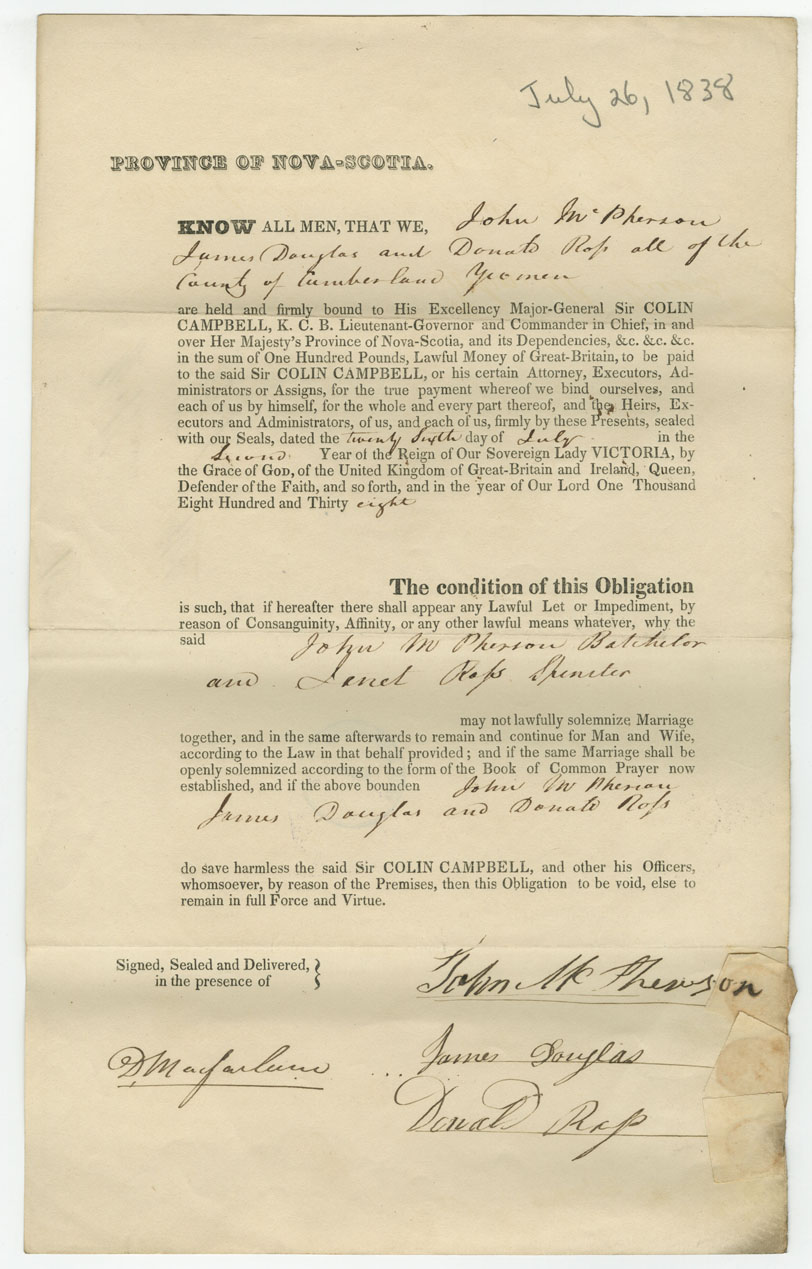 July 26, 1838
PROVINCE OF NOVA-SCOTIA.
KNOW ALL MEN, THAT WE, John Mc Pherson
James Douglas and Donald Roſs all of the
County of Cumberland Yeomen
are held and firmly bound to His Excellency Major-General Sir COLIN
CAMPBELL, K. C. B. Lieutenant-Governor and Commander in Chief, in and
over Her Majesty's Province of Nova-Scotia, and its Dependencies, &c. &c. &c.
in the sum of One Hundred Pounds, Lawful Money of Great-Britain, to be paid
to the said Sir COLIN CAMPBELL, or his certain Attorney, Executors, Ad-
ministrators or Assigns, for the true payment whereof we bind ourselves, and
each of us by himself, for the whole and every part thereof, and the Heirs, Ex-
ecutors and Administrators, of us, and each of us, firmly by these Presents, sealed
with our Seals, dated the twenty Sixth day of July in the
Second Year of the Reign of Our Sovereign Lady VICTORIA, by
the Grace of GOD, of the United Kingdom of Great-Britain and Ireland, Queen,
Defender of the Faith, and so forth, and in the year of Our Lord One Thousand
Eight Hundred and Thirty eight
The condition of this Obligation
is such, that if hereafter there shall appear any Lawful Let or Impediment, by
reason of Consanguinity, Affinity, or any other lawful means whatever, why the
said John Mc Pherson Batchelor
and Janet Roſs Spinster
may not lawfully solemnize Marriage
together, and in the same afterwards to remain and continue for Man and Wife,
according to the Law in that behalf provided; and if the same Marriage shall be
openly solemnized according to the form of the Book of Common Prayer now
established, and if the above bounden John Mc Pherson
James Douglas and Donald Roſs
do save harmless the said Sir COLIN CAMPBELL, and other his Officers,
whomsoever, by reason of the Premises, then this Obligation to be void, else to
remain in full Force and Virtue.
Signed, Sealed and Delivered,
in the presence of
John Mc Pherson
D. Macfarlane
James Douglas
Donald Roſs